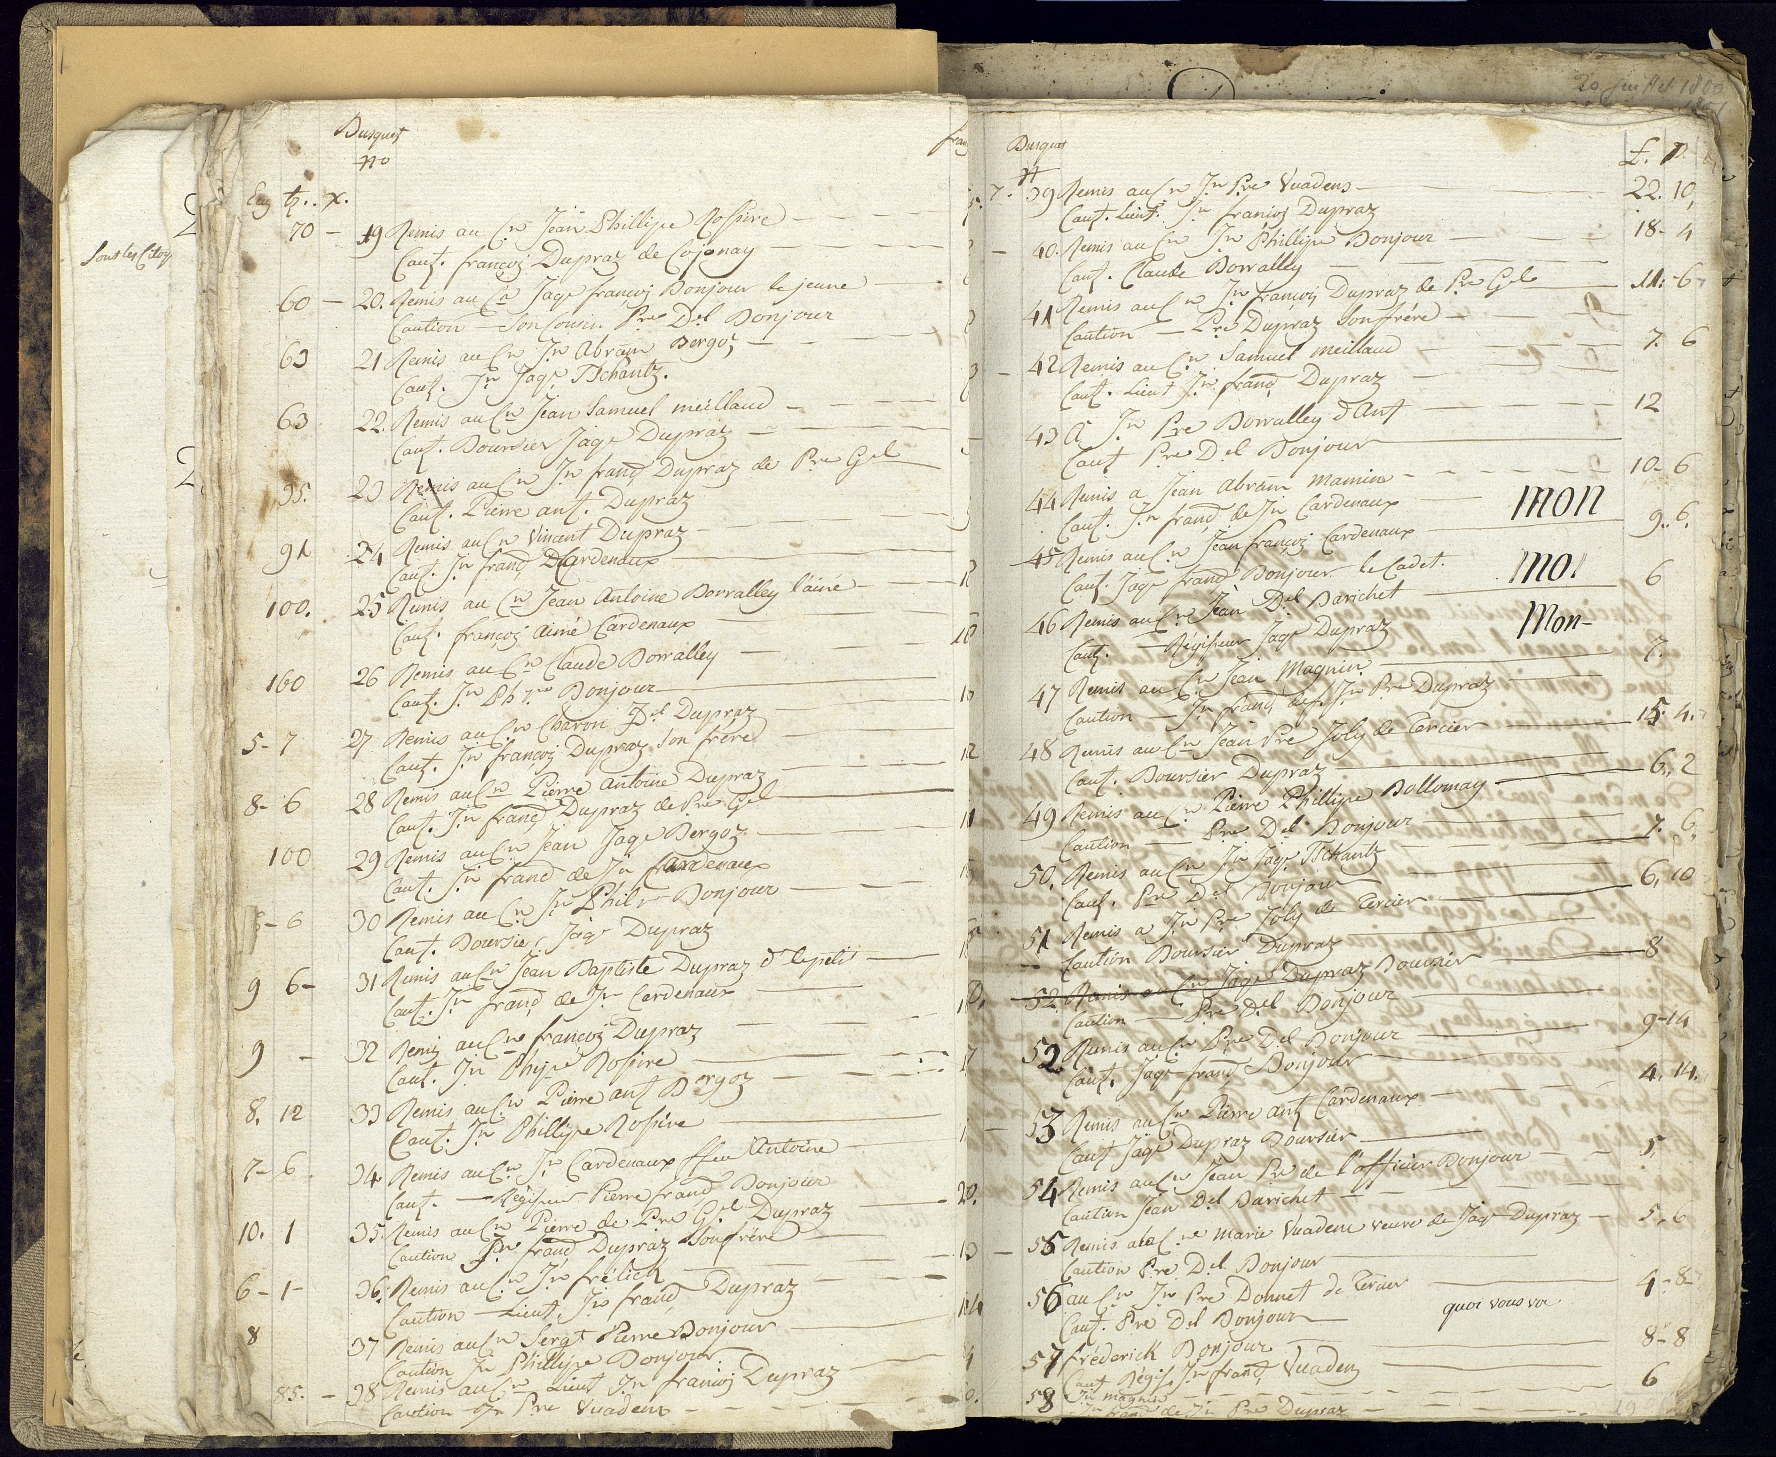 20 juillet 1800
Sont les Citoy
Busquet
No
70 - 19 Remis au Cn Jean Phillipe Rossire
Caut. françoi Dupraz de Cojonay
60 - 20. Remis au Cn Jaqs françoi Bonjour le jeune
Caution - Son Cousin Pre Del Bonjour
63 21 Remis au Cn Jn Abram Bergoz
Caut. Jn Jaqs Tschantz.
63 22. Remis au Cn Jean Samuel meilland
Caut. Boursier Jaqs Dupraz
95. 23 Remis au Cn Jn franç Dupraz de Pre Gel
Caut. Pierre ant. Dupraz
91 24 Remis au Cn Vincent Dupraz
Caut. Jn franç Cardenaux
100. 25 Remis au Cn Jean Antoine Dorralley l'ainé
Caut. françoi aimé Cardenaux
160 26 Remis au Cn Claude Dorralley
Caut. Jn Phpe Bonjour
5-7 27 Remis au Cn Charon Jel Dupraz
Caut. Jn françoi Dupraz son frère
8-6 28 Remis au Cn Pierre antoine Dupraz
Caut. Jn franç Dupraz de Pre Gel
100 29 Remis au Cn Jean Jaqs Bergoz
Caut. Jn franç de Jn Cardenaux
8-6 30 Remis au Cn Jn Phil Bonjour
Caut. Boursier Jaqs Dupraz
9 6- 31 Remis au Cn Jean Baptiste Dupraz dt lepetit
Caut. Jn franç de Jn Cardenaux
9 - 32 Remis au Cn françoi Dupraz
Caut. Jn Phipe Rossire
8. 12 33 Remis au Cn Pierre ant Bergoz
Caut. Jn Phillipe Rossire
7-6 34 Remis au Cn Jn Cardenaux ffeu Antoine
Caut. - Régisseur Pierre franç Bonjour
10. 1 35. Remis au Cn Pierre de Pre Gel Dupraz
Caution Jn franç Dupraz Son frère
6-1- 36. Remis au Cn Jn frélick
Caution - Lieut. Jn franç Dupraz
8 37 Remis au Cn Sergt Pierre Bonjour
Caution Jn Phillipe Bonjour
85. - 38 Remis au Cn Lieut Jn françoi Dupraz
Caution - Jn Pre Vuadens
Busquet
£.
7. 39 Remis au Cn Jn Pre Vuadens - 22. 10,
Caut. Lieut. Jn françoi Dupraz
- 40. Remis au Cn Jn Phillipe Bonjour - 18- 4
Caut. Claude Dorralley
41 Remis au Cn Jn françoi Dupraz de Pre Gel - 11:-6
Caution - Pre Dupraz son frére
- 42 Remis au Cn Samuel meilland 7. 6
Caut. Lieut Jn franç Dupraz
43 A Jn Pre Dorralley d'Ant 12
Caut Pre Del Bonjour
44 Remis a Jean abram mamin 10- 6
Caut. Jn franç de Jn Cardenaux mon
45 Remis au Cn Jean françoi Cardenaux 9.. 6.
Caut. Jaqs franç Bonjour le Cadet. mon
46 Remis au Cn Jean Del Barichet 6
Caut. - Régisseur Jaqs Dupraz Mon-
47 Remis au Cn Jean Magnin 7.
Caution - Jn franç de Jn Pre Dupraz
48 Remis au Cn Jean Pre Joly de Cercier 15. 4.
Caut. Boursier Dupraz
49 Remis au Cn Pierre Phillipe Dollomay 6,, 2
Caution - Pre Del Bonjour
50. Remis au Cn Jn Jaqs Tschantz 7. 6.
Caut. Pre Del Bonjour
51 Remis a Jn Pre Joly de Cercier 6, 10
Caution Boursier Dupraz
52 Remis au Cn Jaqs Dupraz Boursier 8
Caution - Pre Del Bonjour
52 Remis au Cn Pre Del Bonjour 9-14
Caut. Jaqs franç Bonjour
- 53 Remis au Cn Pierre ant Cardenaux 4. 14.
Caut Jaqs Dupraz Boursier
54 Remis au Cn Jean Pre de l'officier Bonjour 5,
Caution Jean Del Barichet
- 55 Remis a la Cne Marie Vuadens veuve de Jaqs Dupraz 5, 6
Caution Pre Del Bonjour
56 au Cn Jn Pre Donnet de Cercier 4-8
Caut. Pre Del Bonjour quoi vous voi
57 fréderick Bonjour 8-8
Caut Régis. Jn franç Vuadens
58 Jn magnin 6
Jn franç de Jn Pre Dupraz